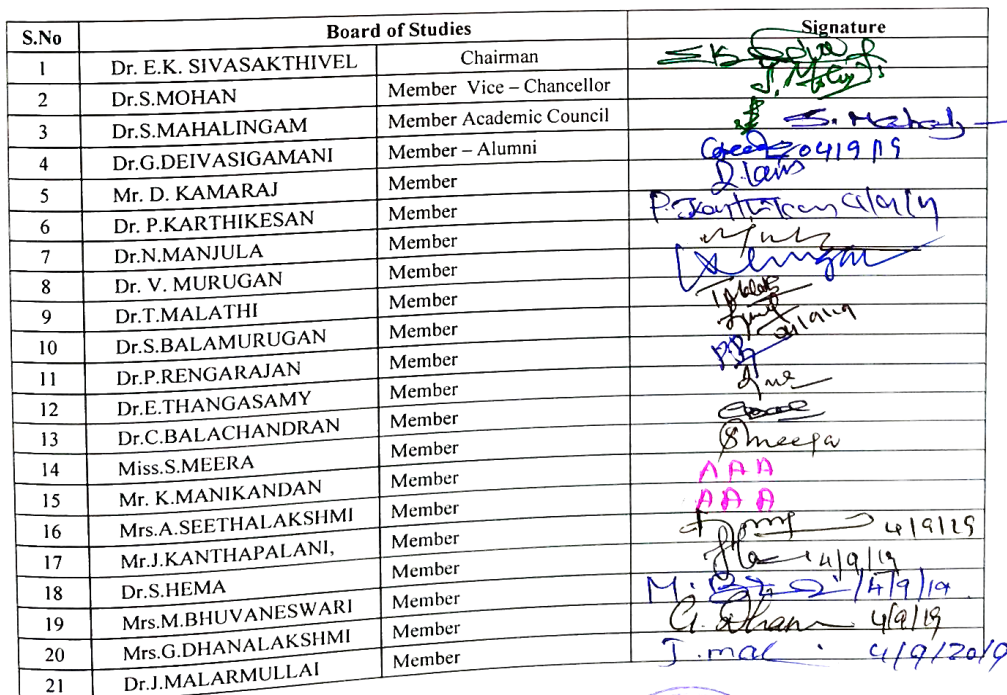 S.No Board of Studies Signature
1 Dr. E.K. SIVASAKTHIVEL Chairman
2 Dr.S.MOHAN Member Vice – Chancellor
3 Dr.S.MAHALINGAM Member Academic Council S. Mahal
4 Dr.G.DEIVASIGAMANI Member – Alumni 04/9/19
5 Mr. D. KAMARAJ Member
6 Dr. P.KARTHIKESAN Member P. Karthikesan
7 Dr.N.MANJULA Member
8 Dr. V. MURUGAN Member
9 Dr.T.MALATHI Member
10 Dr.S.BALAMURUGAN Member
11 Dr.P.RENGARAJAN Member
12 Dr.E.THANGASAMY Member
13 Dr.C.BALACHANDRAN Member
14 Miss.S.MEERA Member Smeera
15 Mr. K.MANIKANDAN Member A A A
16 Mrs.A.SEETHALAKSHMI Member A A A
17 Mr.J.KANTHAPALANI, Member 4/9/19
18 Dr.S.HEMA Member 4/9/19
19 Mrs.M.BHUVANESWARI Member 4/9/19
20 Mrs.G.DHANALAKSHMI Member G. Dhana 4/9/19
21 Dr.J.MALARMULLAI Member J. mal 4/9/2019